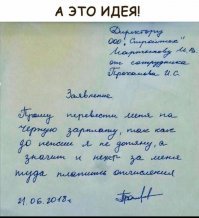 А ЭТО ИДЕЯ!
Директору
ООО "Стройтех"
Мартынову М.В.
от сотрудника
Прохамова И.С.
Заявление
Прошу перевести меня на
черную зарплату, так как
до пенсии я не доживу, а
значит и нехер за меня
туда платить отчисления
21.06.2018г.